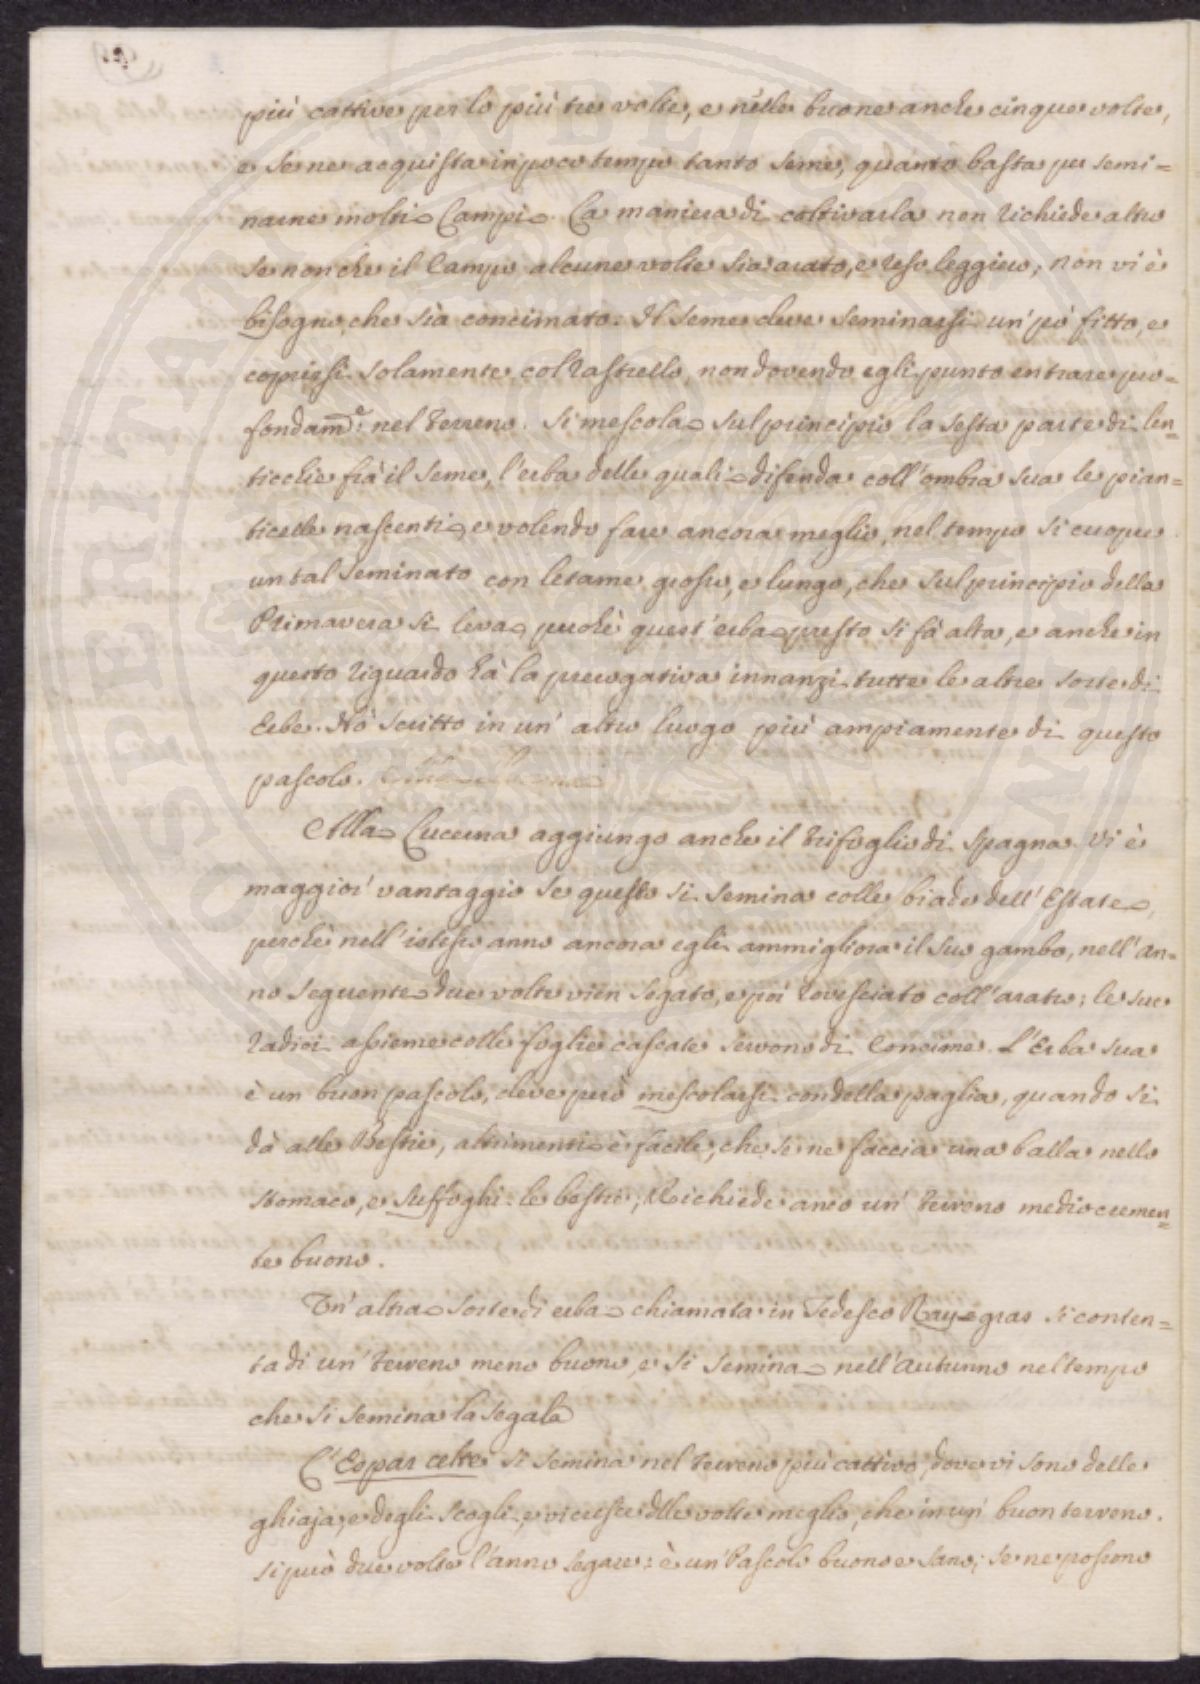 più cattive per lo più tre volte, e nelle buone anche cinque volte,
e se ne acquista in poco tempo tanto seme, quanto basta per semi=
narne molti Campi. La maniera di coltivarla non richiede altro
se non che il Campo alcune volte sia arato, e reso leggiero, non vi è
bisogno, che sia concimato. Il seme deve seminarsi un' pò fitto, e
coprirsi solamente col Rastrello, non dovendo egli punto entrare pro=
fondam:e nel Terreno. Si mescola sul principio la sesta parte di len=
ticchie frà il seme, l'erba delle quali difenda coll'ombra sua le pian=
ticelle nascenti, e volendo fare ancora meglio, nel tempo si cuopre
un tal seminato con letame grosso, e lungo, che sul principio della
Primavera si leva, perchè quest'erba presto si fà alta, e anche in
questo riguardo hà la prerogativa innanzi tutte le altre sorte di
Erbe. Hò scritto in un' altro luogo più ampiamente di questo
pascolo.
Alla Lucerna aggiungo anche il Trifoglio di Spagna. Vi è
maggior' vantaggio se questo si semina colle biade dell'Estate,
perchè nell'istesso anno ancora egli ammigliora il suo gambo, nell'an=
no seguente due volte vien segato, e poi rovesciato coll'aratro; le sue
Radici assieme colle foglie cascate servono di Concime. L'Erba sua
è un buon pascolo, deve però mescolarsi con della paglia, quando si
dà alle Bestie, altrimenti è facile, che se ne faccia una balla nello
stomaco, e suffoghi le bestie; Richiede anco un' Terreno mediocremen=
te buono.
Un' altra sorte di erba chiamata in Tedesco Ray=gras si conten=
ta di un' Terreno meno buono, e si semina nell'autunno nel tempo
che si semina la segala
L'Espar celte si semina nel Terreno più cattivo, dove vi sono delle
ghiaje, e degli scogli, e vi cresce delle volte meglio, che in un' buon terreno.
si può due volte l'anno segare: è un' Pascolo buono e sano; se ne possono